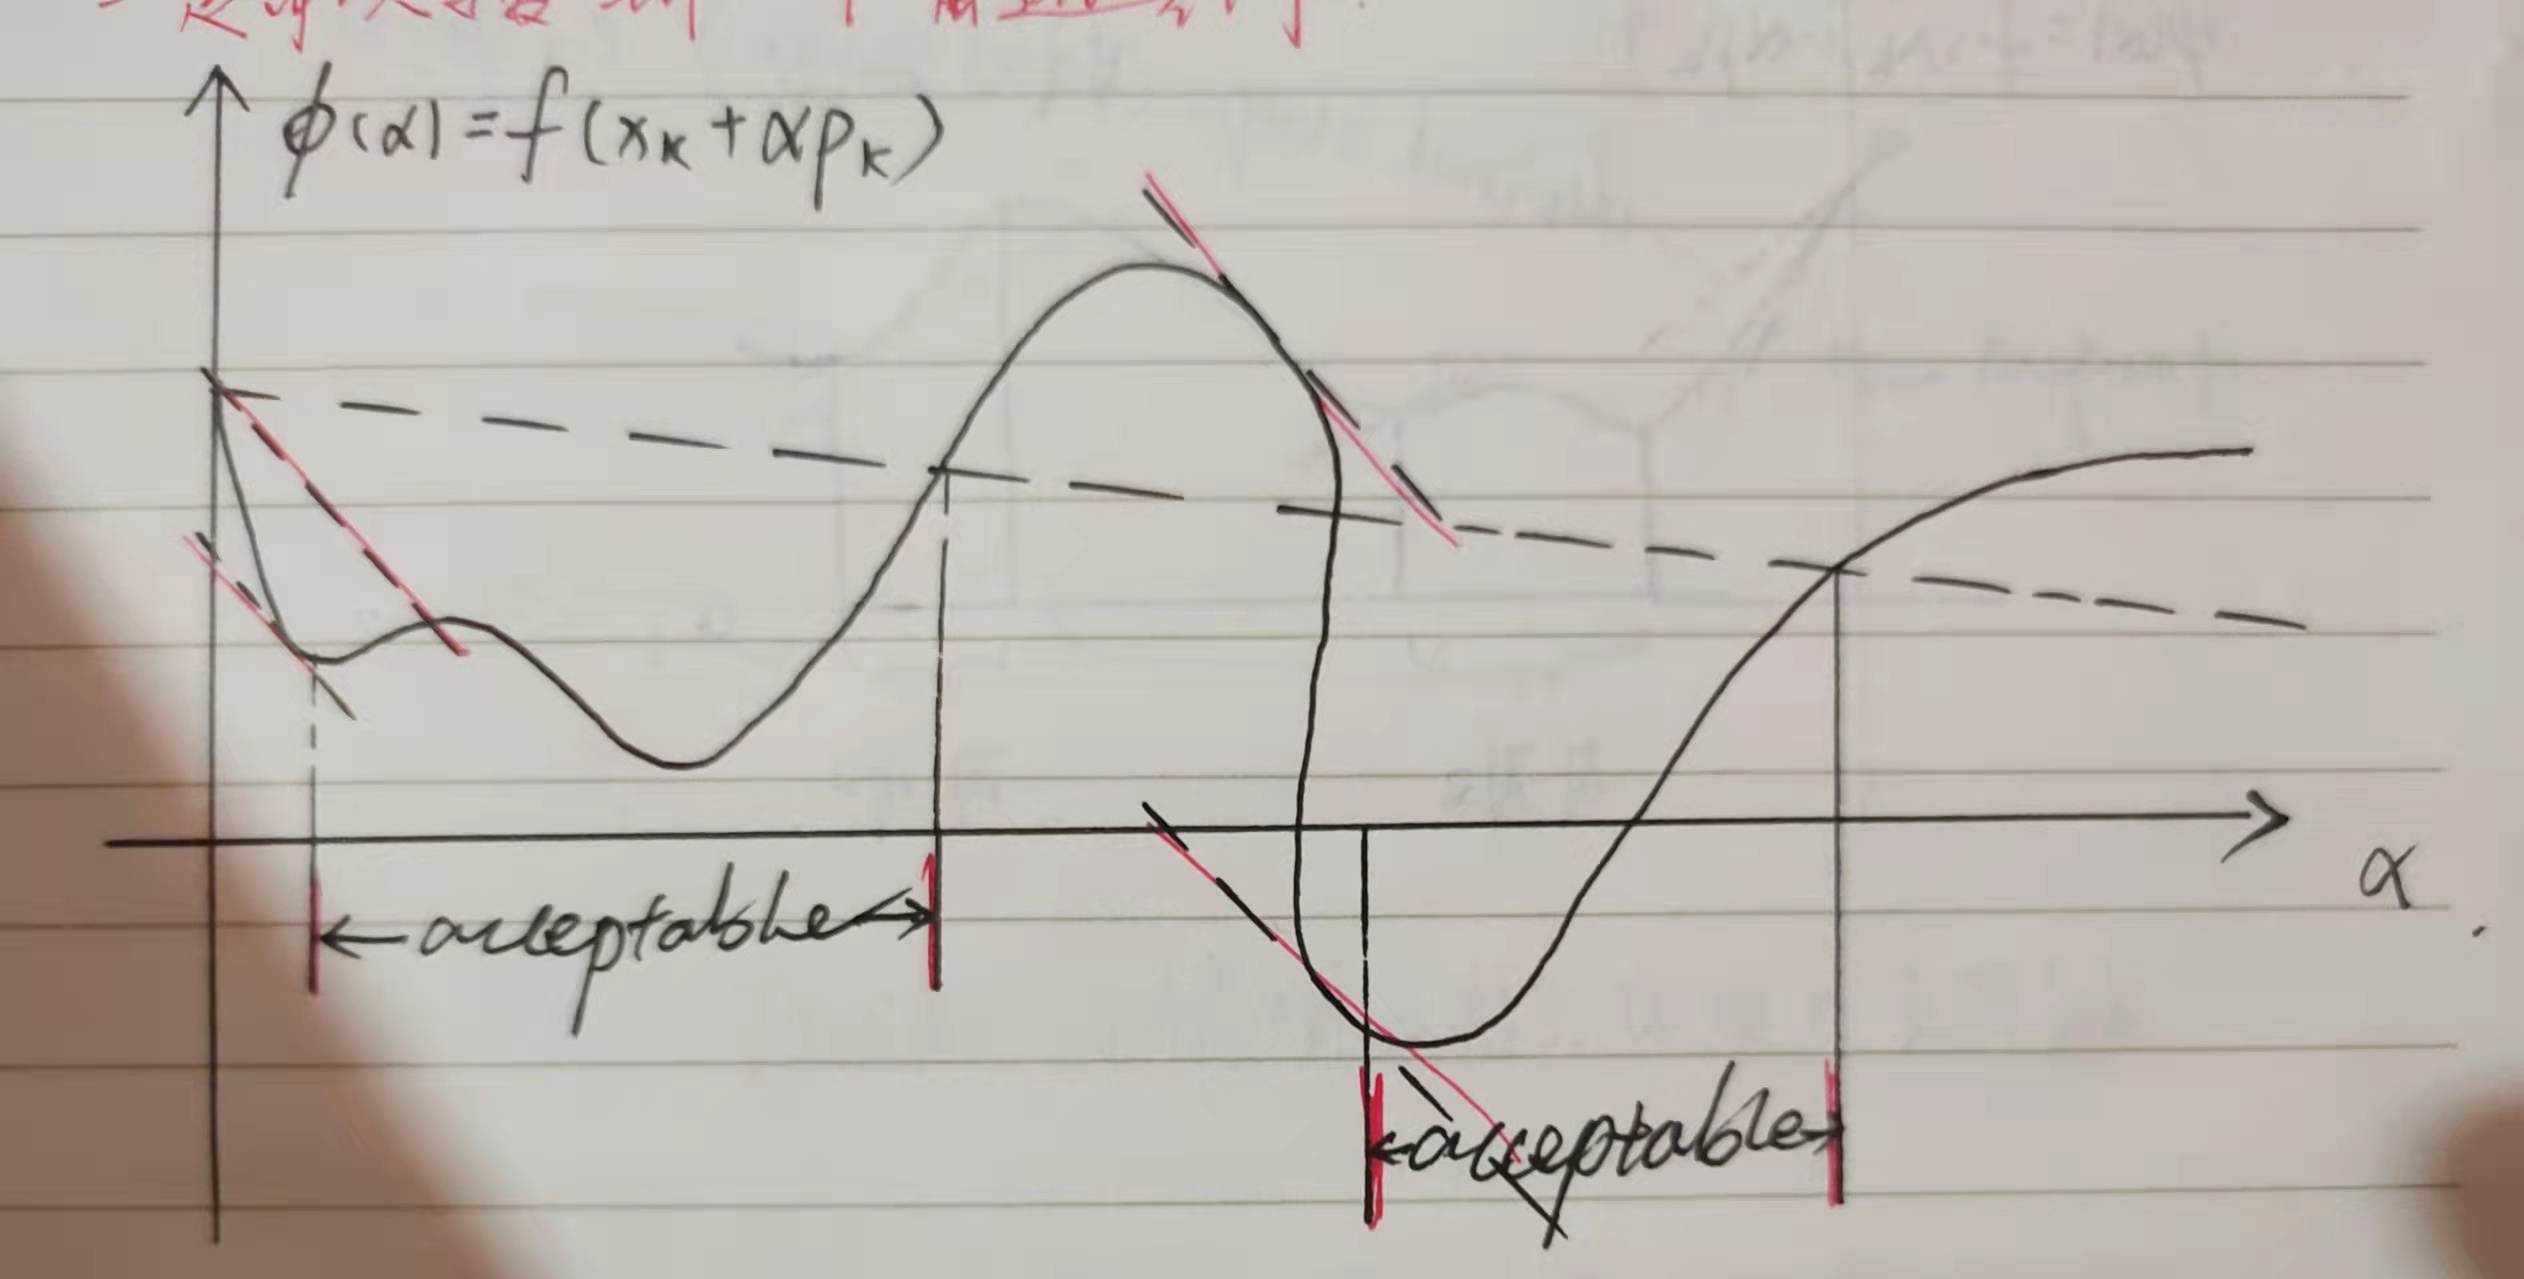 ϕ(α)=f(xₖ+αpₖ)
α
acceptable
acceptable